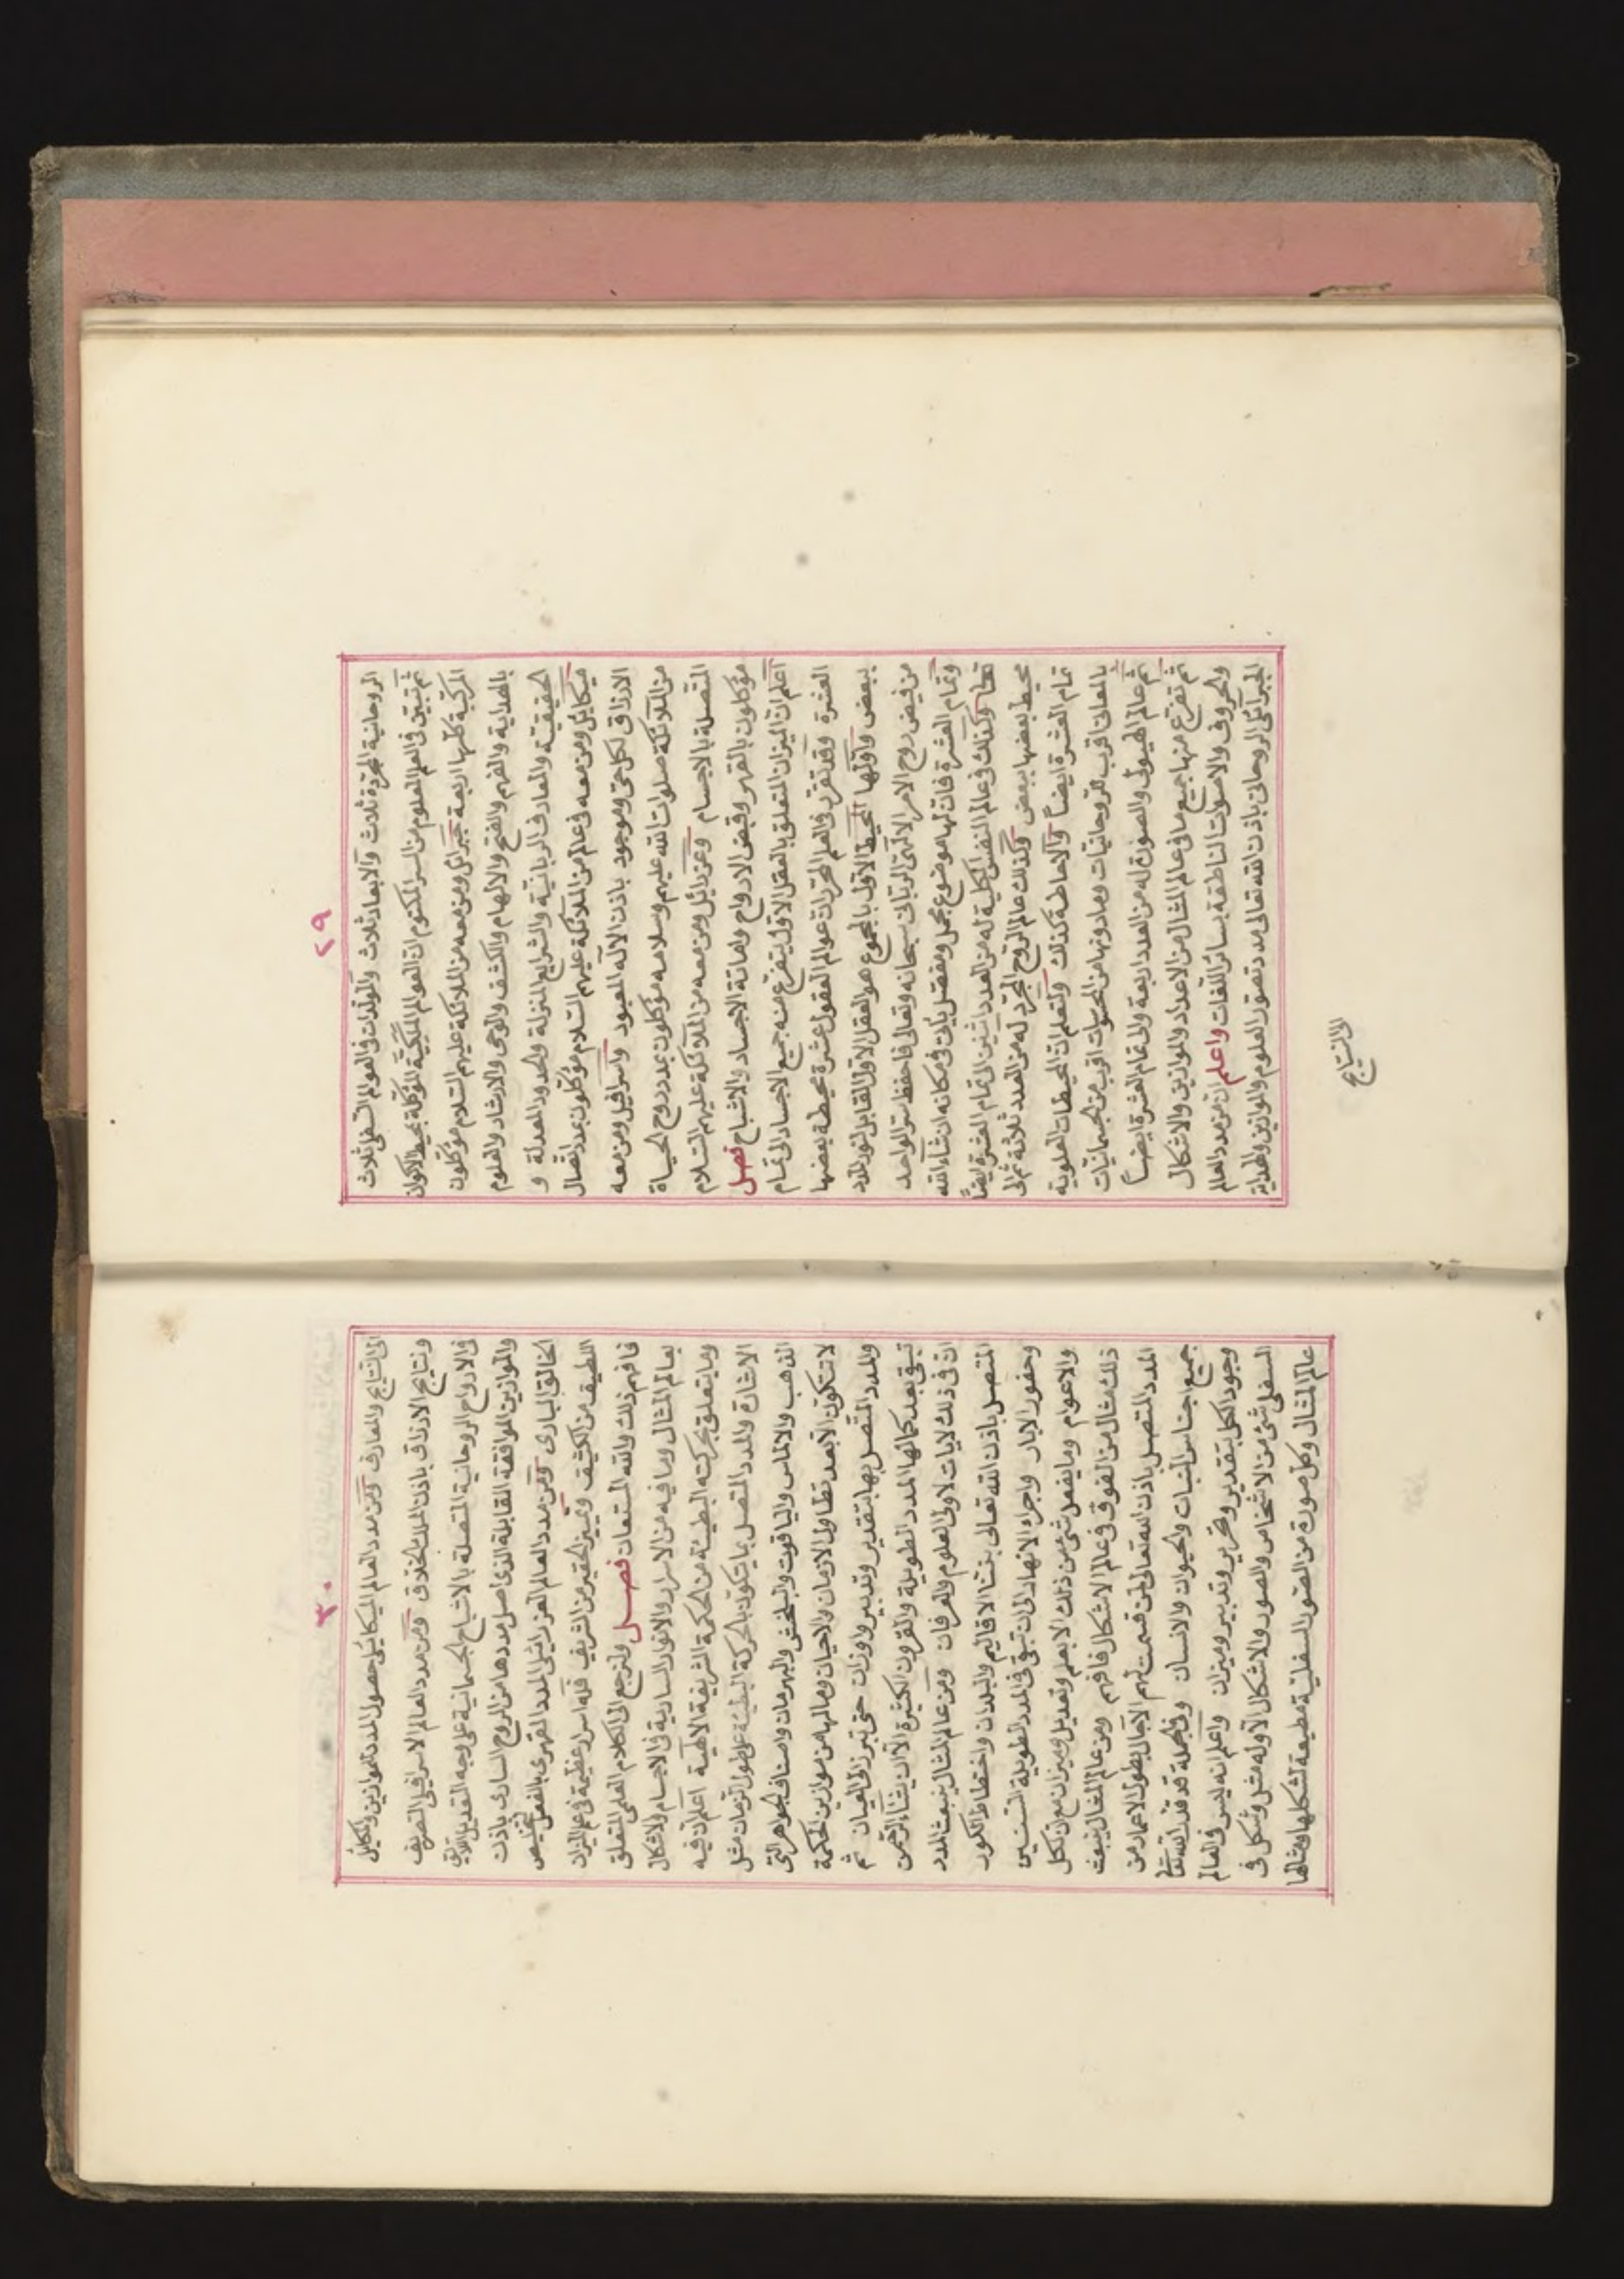 ٢٩
الروحانية المجردة ثلاث والابعاد ثلاث والمولدات في العوالم السفلى ثلاث
ثم تبين في العلم المعلوم من السر المكتوم ان العوالم الملكية الموكلة بمحيط الاكوان
المركبة كلها اربعة جبرائل ومن معه من الملائكة عليهم السلام موكلون
بالهداية والفهم والفتح والالهام والكشف والوحى والارشاد والعلوم
الحقيقية والمعارف الربانية والشرايع المنزلة والحدود المعدلة و
ميكايل ومن معه في عالم من الملائكة عليهم السلام موكلون بمدد اتصال
الارزاق لكل حى وموجود باذن الاله المعبود واسرافيل ومن معه
من الملائكة صلوات الله عليهم وسلامه موكلون بمدد روح الحياة
المتصلة بالاجسام وعزرايل ومن معه من الملائكة عليهم السلام
موكلون بالقهر وقبض الارواح واماتة الاجساد والاشباح فصل
اعلم ان الميزان المتعلق بالعقل الاول يتفرع منه جميع الاجساد الى تمام
العشرة وقد تقرر في العلم المخزون ان عوالم العقول عشرة محيطة بعضها
ببعض واولها المحيط الاول بالمجموع هو العقل الاول القابل لنور المدد
من فيض روح الامر الالهى الربانى سبحانه وتعالى فاحفظ سر الواحد
وتمام العشرة فان لها موضوع مجمل ومفصل يأتى في مكانه ان شاء الله
تعالى وكذلك في عالم النفس الكلية له من العدد اثنين الى تمام العشرة ايضا
محيط بعضها ببعض وكذلك عالم الروح المجرد له من العدد ثلاثة ثم الى
تمام العشرة ايضا والاحاطة كذلك ولتعلم ان المحيطات العلوية
بالمعانى اقرب للروحانيات وما دونها من المحسوسات اقرب من الجسمانيات
ثم عالم الهيولى والصورة له من العدد اربعة والى تمام العشرة ايضا
ثم تفرع منها جميع ما في عالم المثال من الاعداد والموازين والاشكال
والحروف والاصوات الناطقة بسائر اللغات واعلم ان من مدد العالم
الجبرائلى الروحانى باذن الله تعالى مدد تصور العلوم والموازين والهداية
الى النتايج
٣٠
الى النتايج والمعارف ومن مدد العالم الميكايلى حصول المدد بالموازين والمكاييل
ونتايج الارزاق باذن الملك الخلاق ومن مدد العالم الاسرافيلى التصريف
في الارواح الروحانية المتصلة بالاشباح الجسمانية على وجه التعديل
والموازين الموافقة القابلة الذى اصل مددها من الروح السارى باذن
الخالق البارى ومن مدد العالم العزرائيلى المدد القهرى بالفعل
اللطيف من الكثيف وتمييز الحقير من الشريف فله اسرار عظيمة في علم الميزان
فافهم ذلك والله المستعان فصل ولنرجع الى الكلام العلمى المتعلق
بعالم المثال وما فيه من الاسرار والانوار السارية في الاجسام والاشكال
وما يتعلق بحركته البطيئة من الحكمة الشريفة الالهية اعلم ان فيه
الاشارة والمدد المتصل بما يتكون بالحركة البطيئة على طول الزمان مثل
الذهب والالماس والياقوت والبلخش والبهرمان واصناف الجواهر التى
لا تتكون الا بعد تطاول الازمان والاحيان وما لها من موازين الحكمة
والمدد المتصل بها بتقدير وتدبير واوزان حتى تبرز الى العيان ثم
تبقى بعد كمالها المدد الطويلة والقرون الكثيرة الا ان يشاء الرحمن
ان في ذلك لايات لاولى العلوم والعرفان ومن عالم المثال ينبعث المدد
المتصل باذن الله تعالى بنشا الاقاليم والبلدان واختطاط الكور
وحفور الابار واجراء الانهار الى ان تبقى في المدد الطويلة السنين
والاعوام وما يفعل شئ من ذلك الا بعلم وتعديل وميزان مع ان لكل
ذلك مثال من الفوق في عالم الاشكال فافهم ومن عالم المثال ينبعث
المدد المتصل باذن الله تعالى لمن قسمت لهم الآجال بطول الاعمار من
جميع اجناس النبات والحيوان والانسان وفي الجملة قد قدر الله تعالى
وجود الكل بتقدير وتحرير وتدبير وميزان واعلم انه ليس في العالم
السفلى شئ من الاشخاص والصور والاشكال الا وله مثل وشكل في
عالم المثال وكل صورة من الصور السفلية مطيعة لشكلها ومثالها